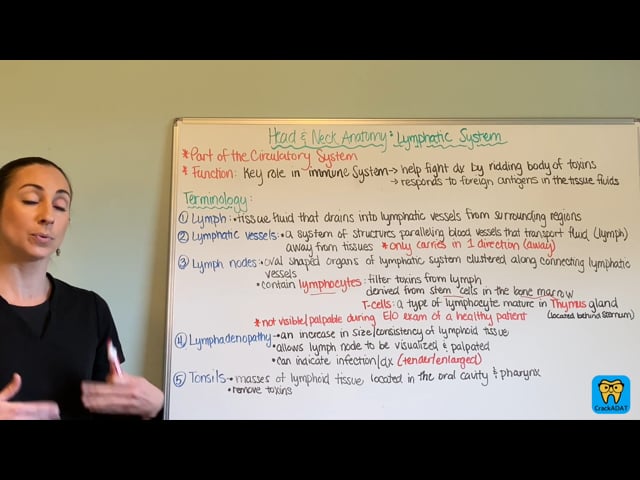 Head & Neck Anatomy: Lymphatic System
*Part of the Circulatory System
*Function: Key role in immune System → help fight dx by ridding body of toxins
→ responds to foreign antigens in the tissue fluids
Terminology:
① Lymph: • tissue fluid that drains into lymphatic vessels from surrounding regions
② Lymphatic vessels: • a system of structures paralleling blood vessels that transport fluid (lymph)
away from tissues *only carries in 1 direction (away)
③ Lymph nodes: • oval shaped organs of lymphatic system clustered along connecting lymphatic
vessels
• contain lymphocytes: filter toxins from lymph
derived from stem cells in the bone marrow
T-cells: a type of lymphocyte mature in Thymus gland
(located behind sternum)
*not visible/palpable during E/O exam of a healthy patient
④ Lymphadenopathy → • an increase in size/consistency of lymphoid tissue
• allows lymph node to be visualized & palpated
• can indicate infection/dx (tender/enlarged)
⑤ Tonsils • masses of lymphoid tissue located in the oral cavity & pharynx
• remove toxins
CrackADAT